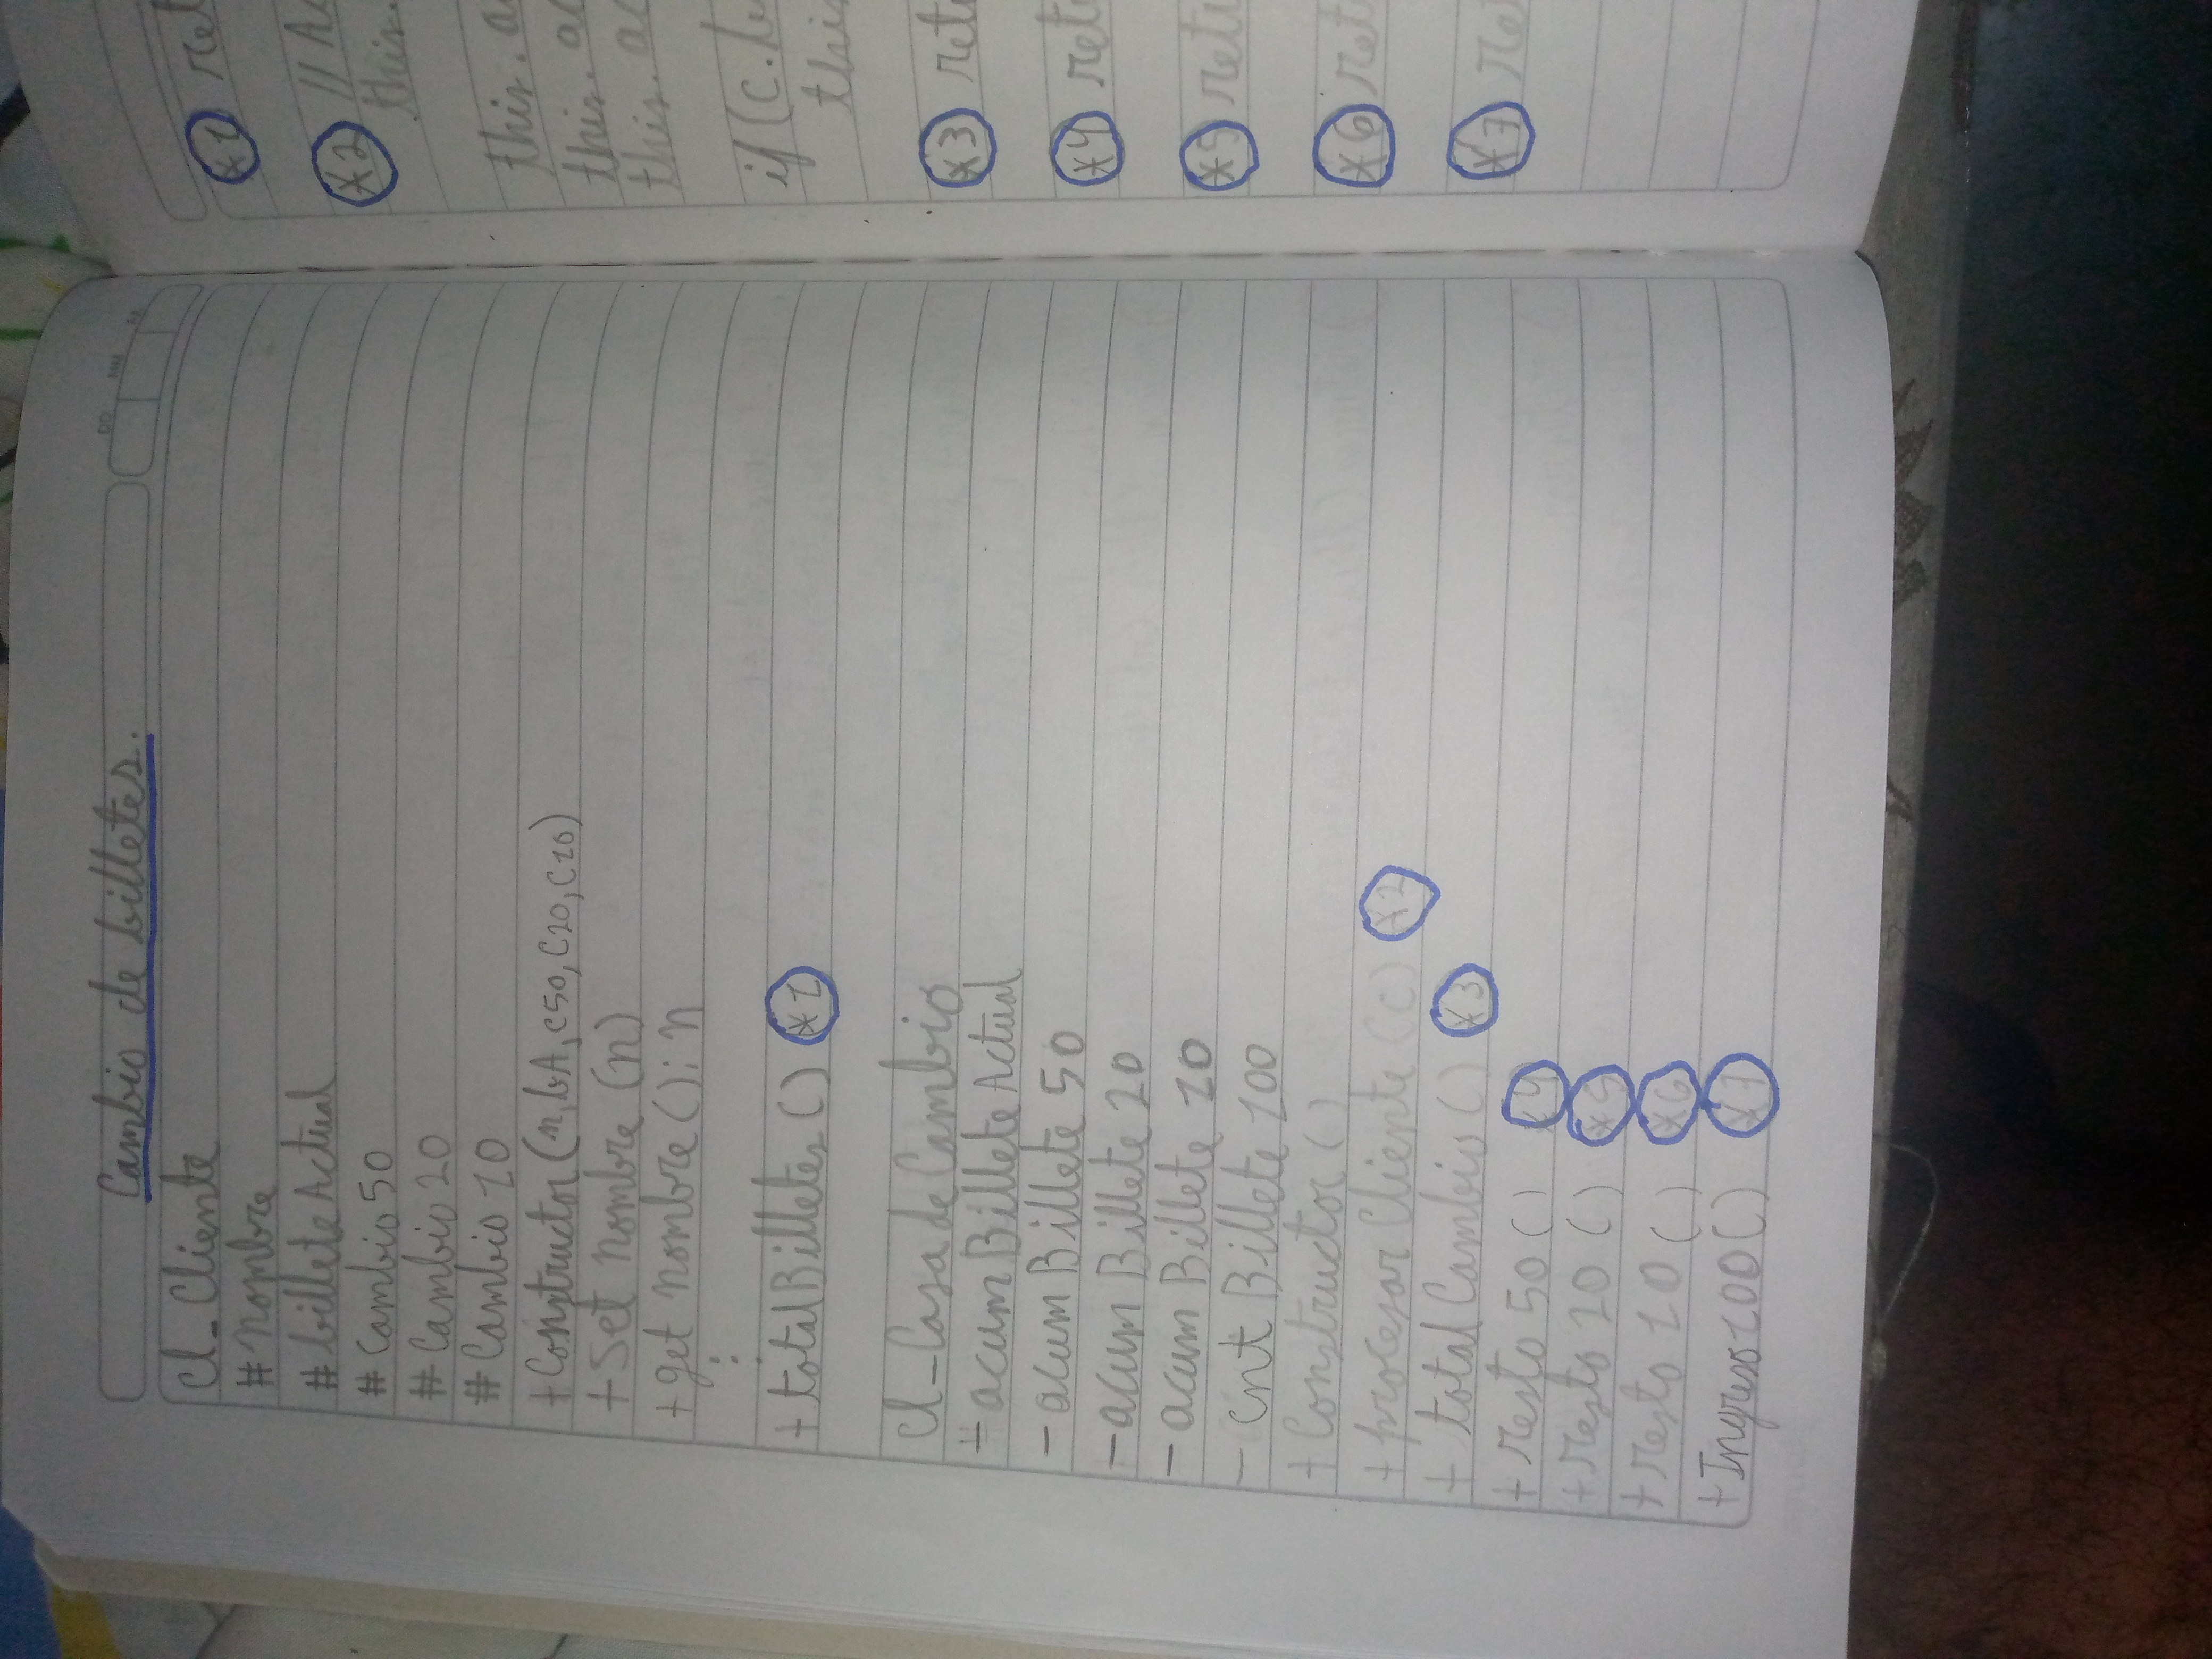 DD MM AA
Cambio de billetes.
Cl_Cliente
# nombre
# billete Actual
# Cambio 50
# Cambio 20
# Cambio 10
+ Constructor (n, bA, c50, C20, C10)
+ Set nombre (n)
+ get nombre ( ) : n
:
+ total Billetes ( ) *1
Cl_Casa de Cambio
- acum Billete Actual
- acum Billete 50
- acum Billete 20
- acum Billete 10
- cnt Billete 100
+ Constructor ( )
+ procesar Cliente (c) *2
+ total Cambio ( ) *3
+ resto 50 ( ) *4
+ resto 20 ( ) *5
+ resto 10 ( ) *6
+ Ingreso 100 ( ) *7
*1 ret
*2 // Ac
this.
this. a
this. ac
this. ac
if (c. b
this
*3 ret
*4 ret
*5 ret
*6 ret
*7 ret